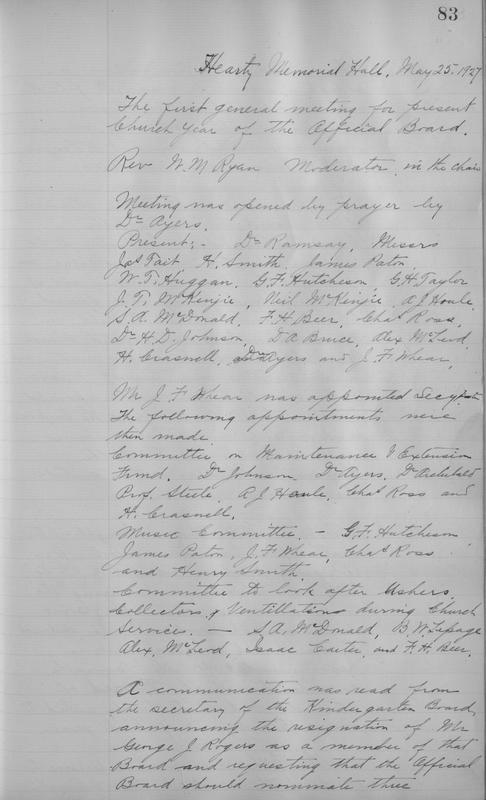 83
Heartz Memorial Hall, May 25. 1927
The first general meeting for present
Church year of the Official Board.
Rev W. M Ryan Moderator in the chair
Meeting was opened by prayer by
Dr Ayers.
Present:- Dr Ramsay, Messrs
Jas Tait H. Smith. James Paton
W. T. Huggan, G. F. Hutcheson, G. H. Taylor
J. T. McKenzie, Neil McKenzie, A. J Houle.
S A. McDonald, F. H. Beer, Chas Ross,
Dr H. D. Johnson, D. A Bruce, Alex McLeod
H. Crasnell, Dr Ayers and J. F Whear,
Mr J. F Whear was appointed Secy
The following appointments were
then made
Committee on Maintenance & Extension
Fund. Dr Johnson Dr Ayers, Dr Archibald
Prof. Steele, A J Houle, Chas Ross and
H. Crasnell.
Music Committee. - G. F. Hutcheson
James Paton, J. F Whear, Chas Ross
and Henry Smith.
Committee to look after Ushers
Collectors & Ventillations during Church
Services. - S. A. McDonald, B. W. Lepage
Alex. McLeod, Isaac Carter, and F. H. Beer.
A communication was read from
the secretary of the Kindergarten Board,
announcing the resignation of Mr
George J. Rogers as a member of that
Board and requesting that the Official
Board should nominate three